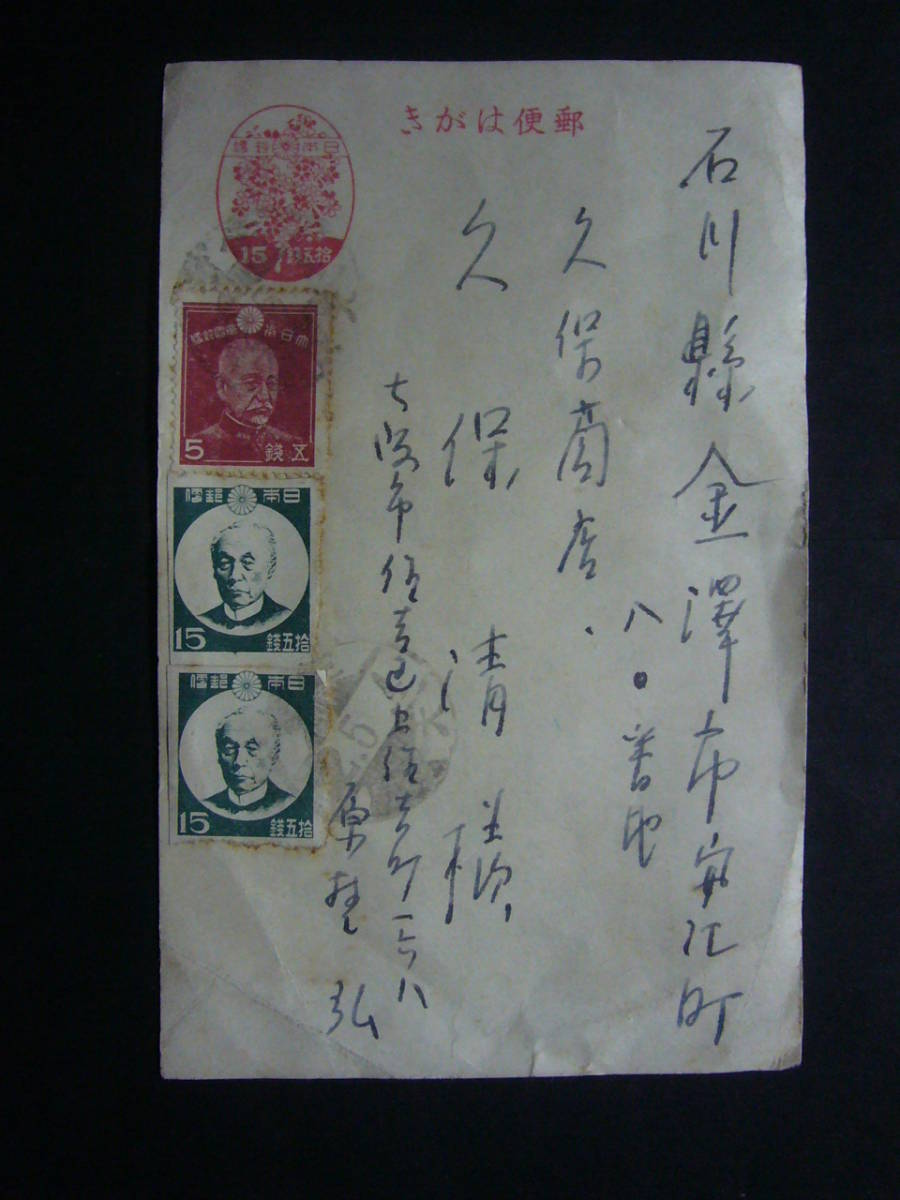 郵便はがき
石川縣金澤市安江町
八〇番地
久保商店、
久保清様
大阪市住吉区上住吉町一六八
原野弘
日本郵便
15 拾五銭
大日本帝國郵便
5 五銭
日本郵便
15 拾五銭
日本郵便
15 拾五銭